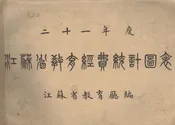 二十一年度
江蘇省教育經費統計圖表
江蘇省教育廳編